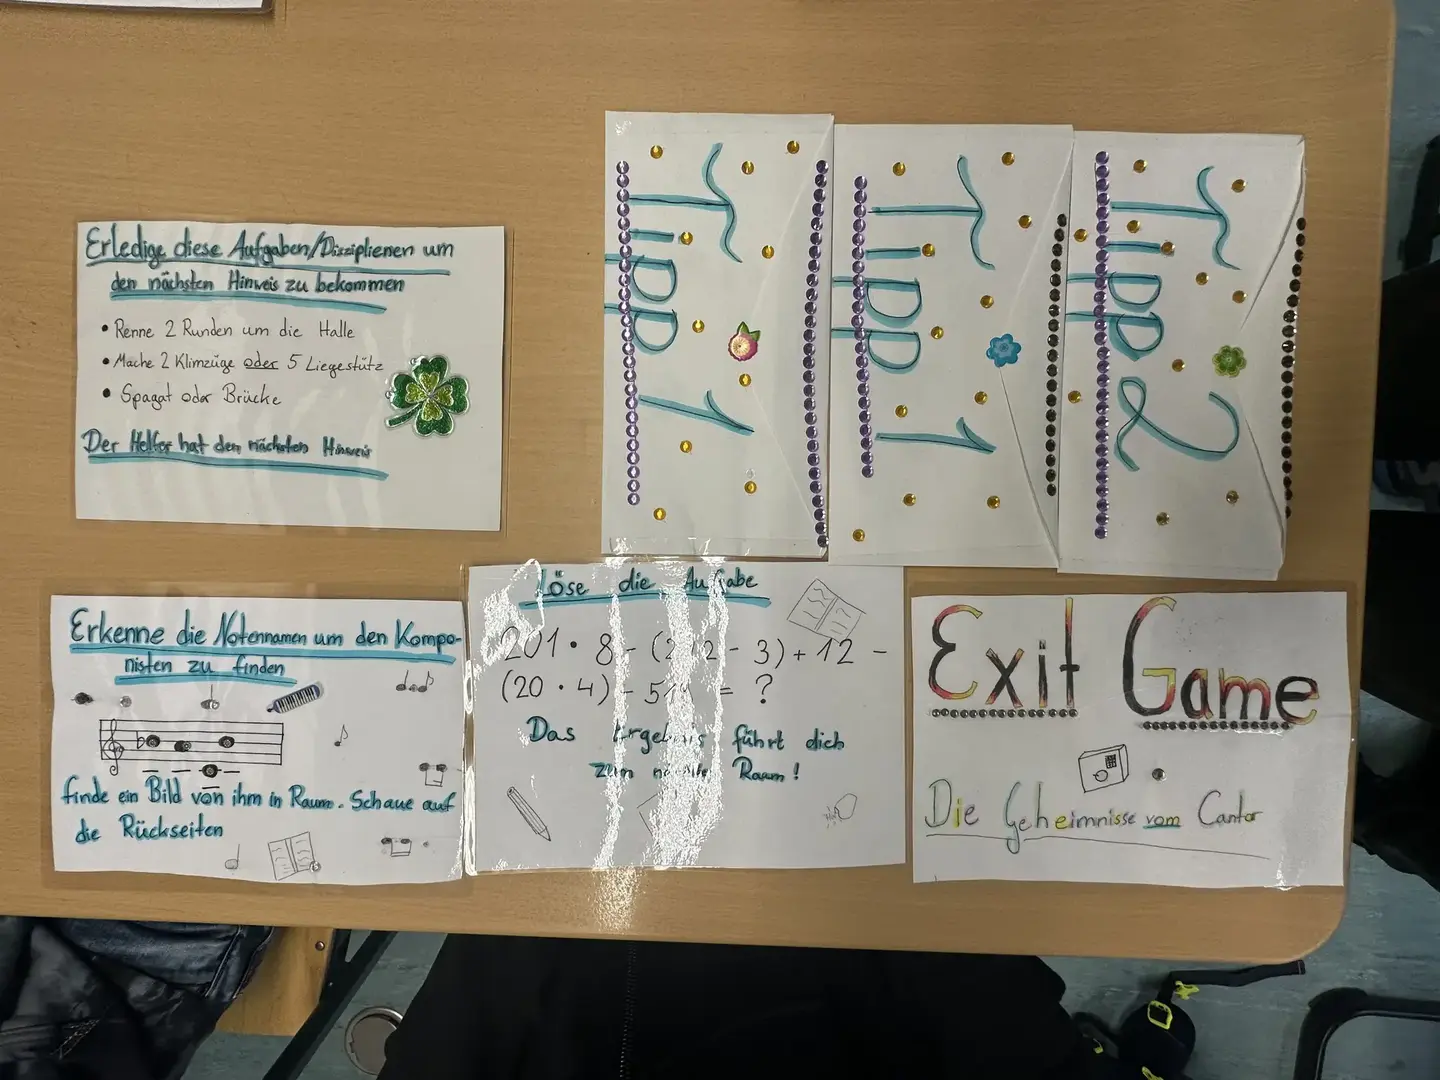 Erledige diese Aufgaben/Disziplienen um
den nächsten Hinweis zu bekommen
• Renne 2 Runden um die Halle
• Mache 2 Klimzüge oder 5 Liegestütz
• Spagat oder Brücke
Der Helfer hat den nächsten Hinweis
Tipp 1
Tipp 1
Tipp 2
Erkenne die Notennamen um den Kompo-
nisten zu finden
finde ein Bild von ihm in Raum. Schaue auf
die Rückseiten
löse die Aufgabe
201 · 8 - ( - 3) + 12 -
(20 · 4) - = ?
Das Ergebnis führt dich
zum Raum!
Exit Game
Die Geheimnisse vom Cantor